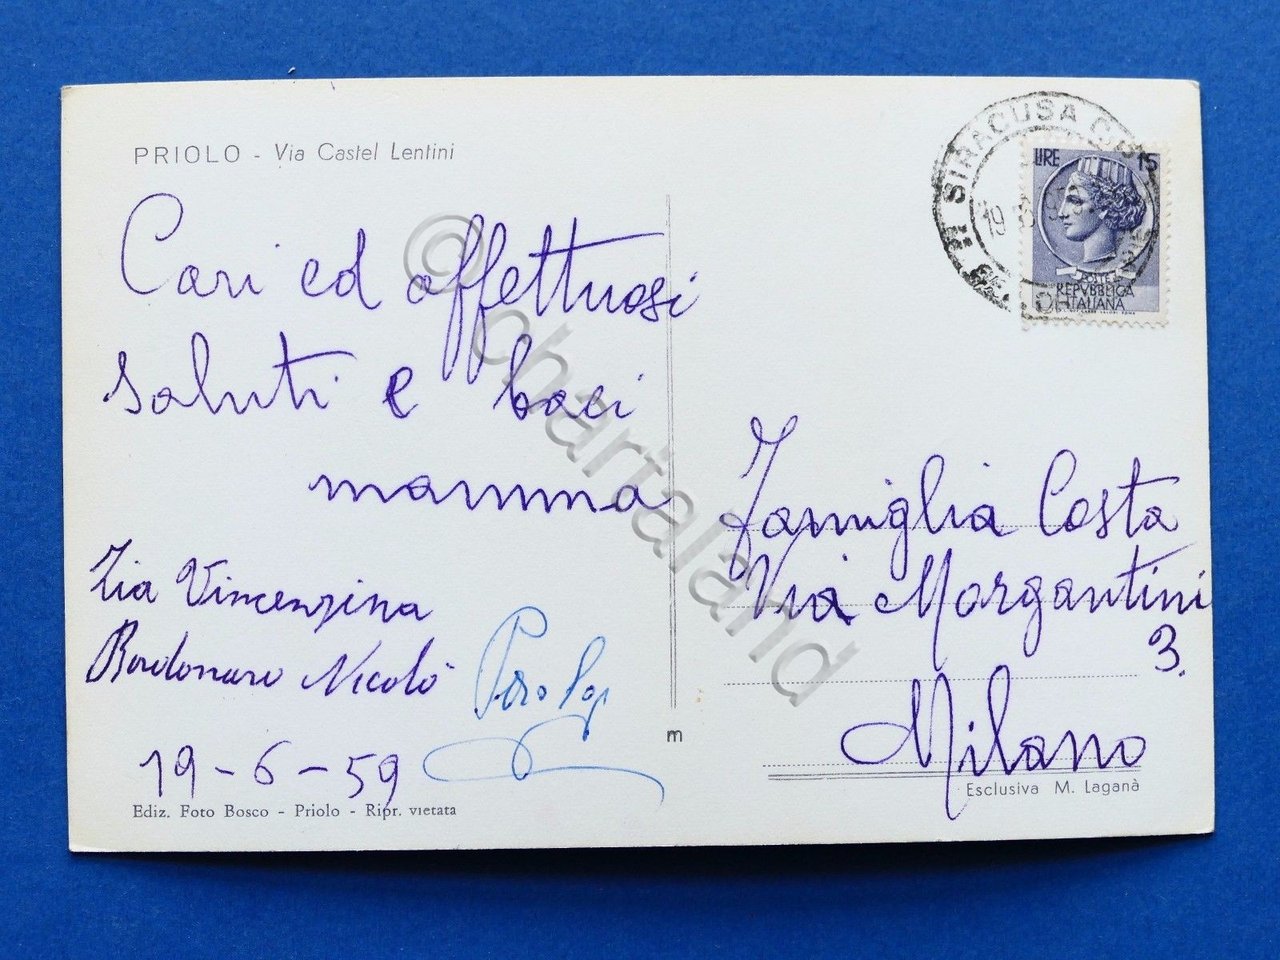 PRIOLO - Via Castel Lentini
Cari ed affettuosi
saluti e baci
mamma
Zia Vincenzina
Bordonaro Nicolò
19-6-59
Ediz. Foto Bosco - Priolo - Ripr. vietata
m
SIRACUSA
19
LIRE 15
POSTE
REPVBBLICA
ITALIANA
Famiglia Costa
Via Morgantini
3.
Milano
Esclusiva M. Laganà
© chartaland